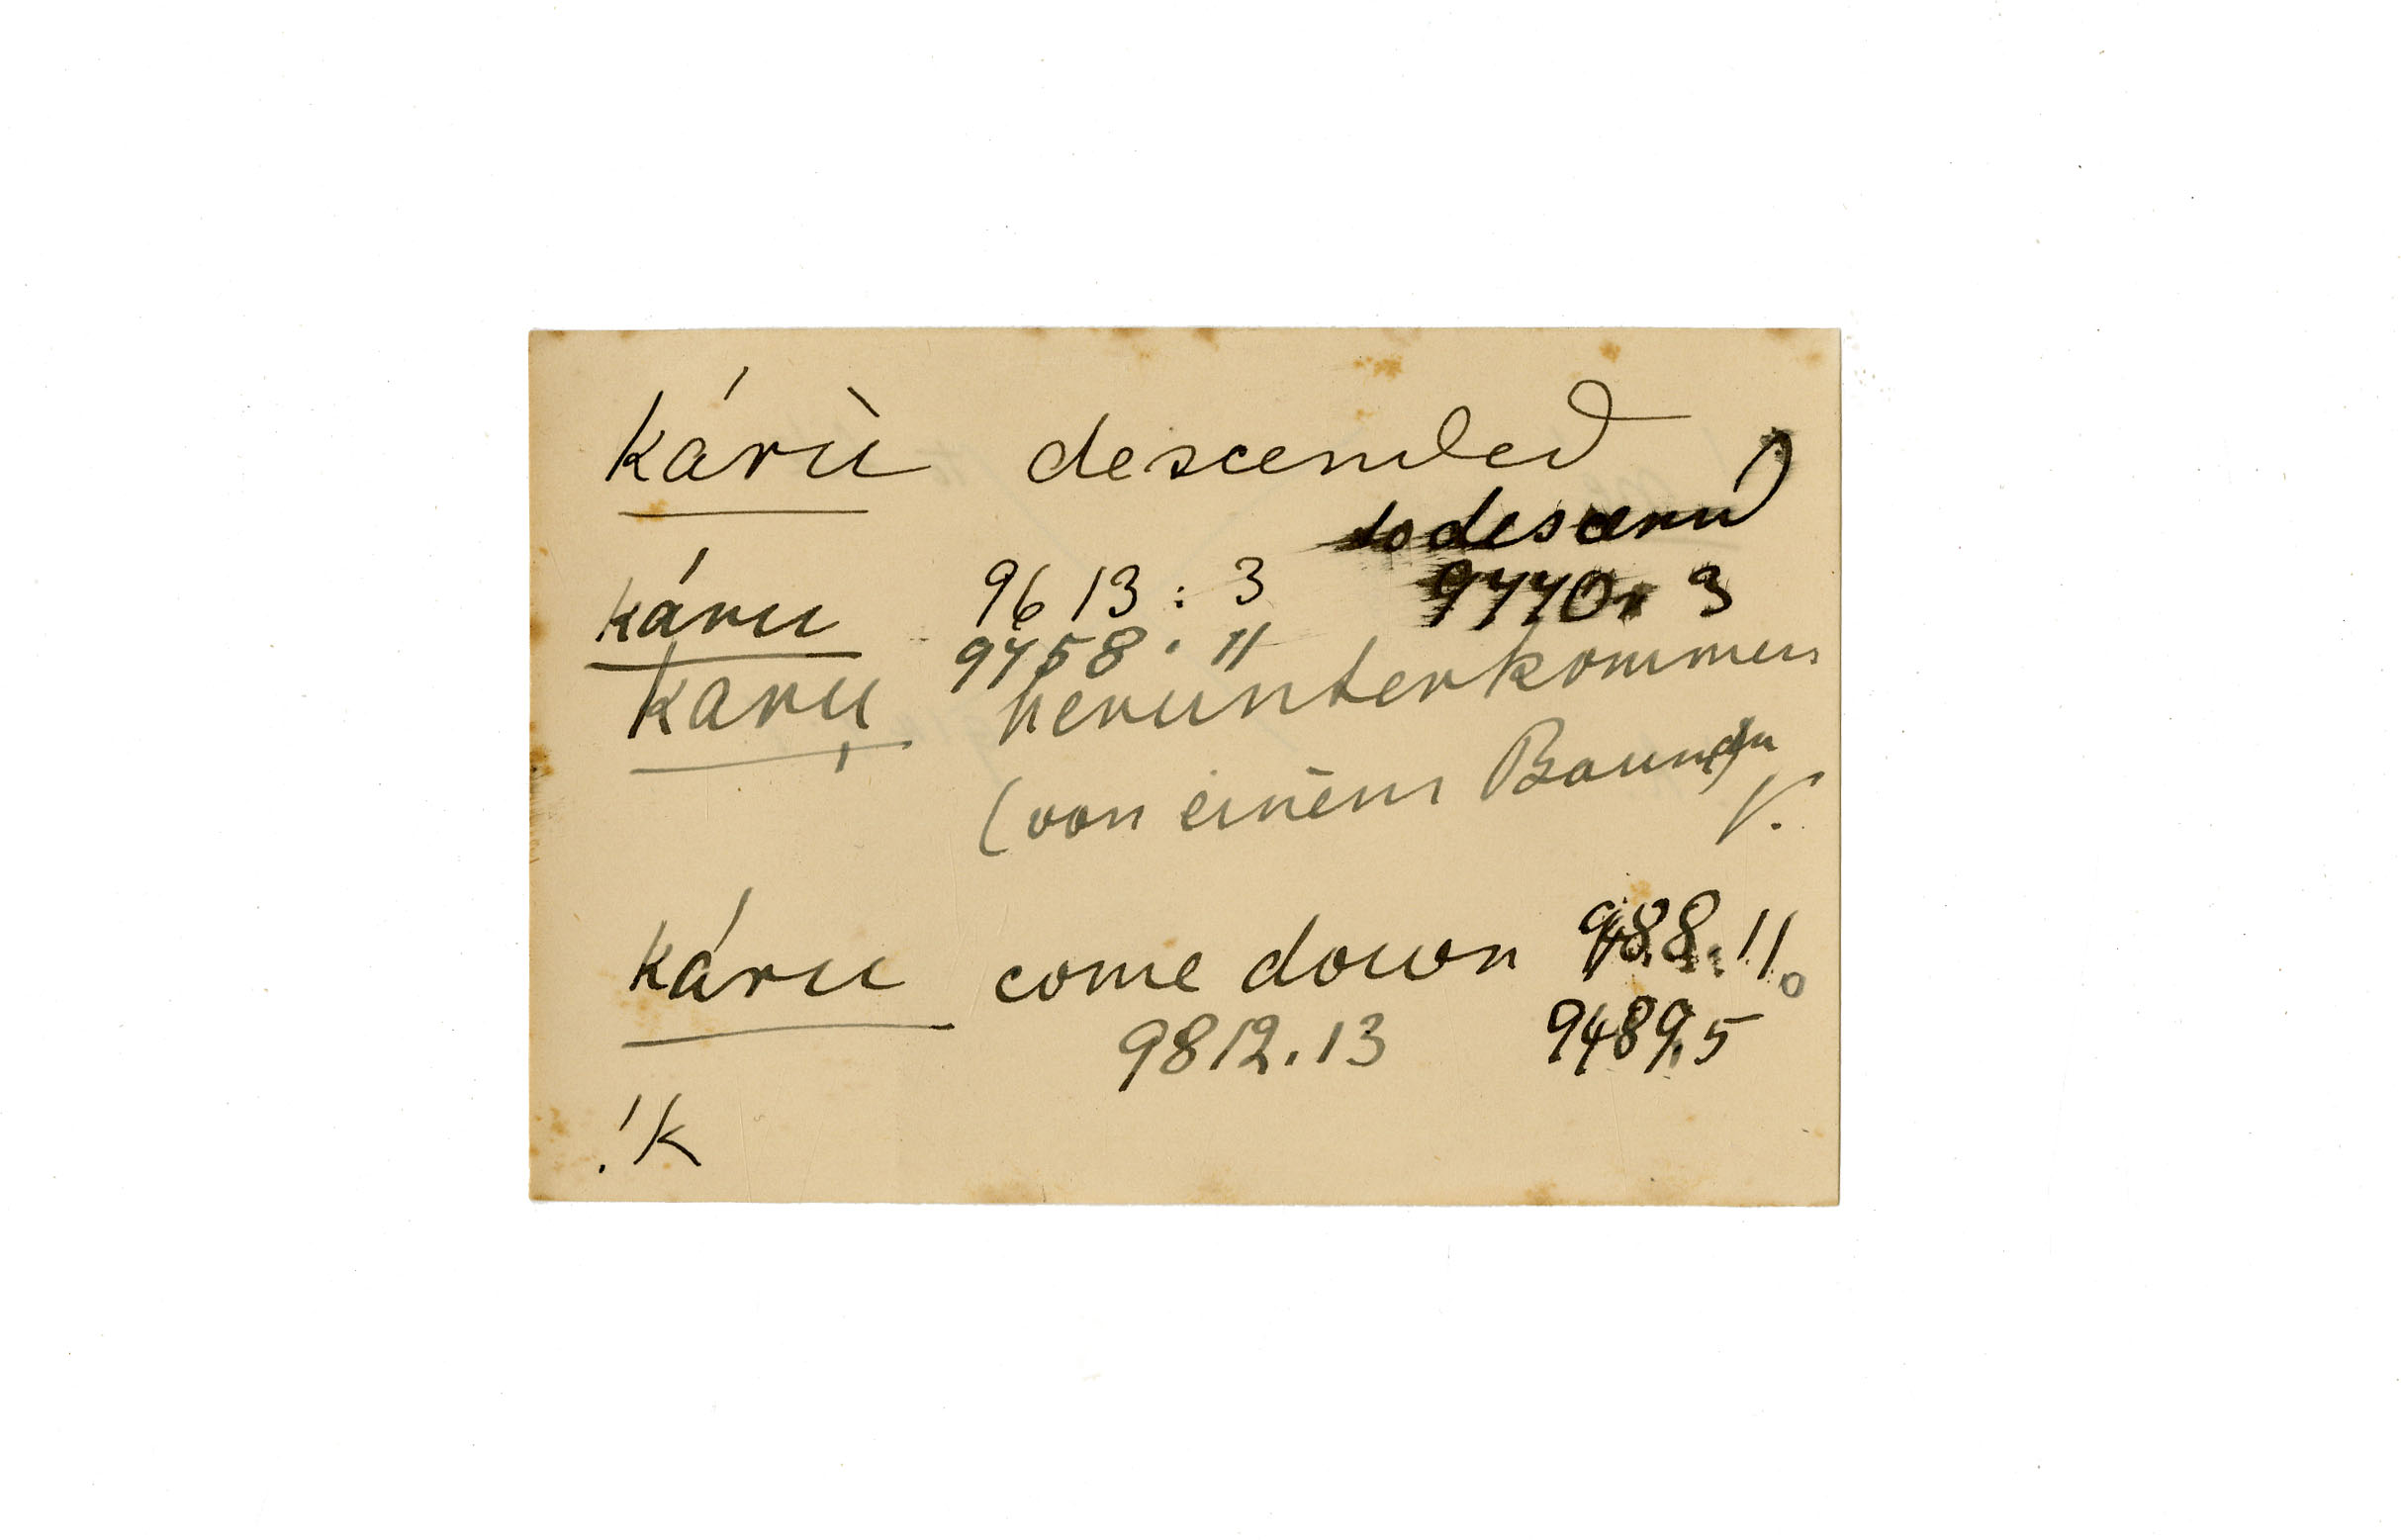 kárù descended
to descend
káru 9613 : 3 9770. 3
9758. 11
karu herunterkommen
(von einem Baum)
V.
káru come down 9488. 11.
9812. 13 9489.5
!k